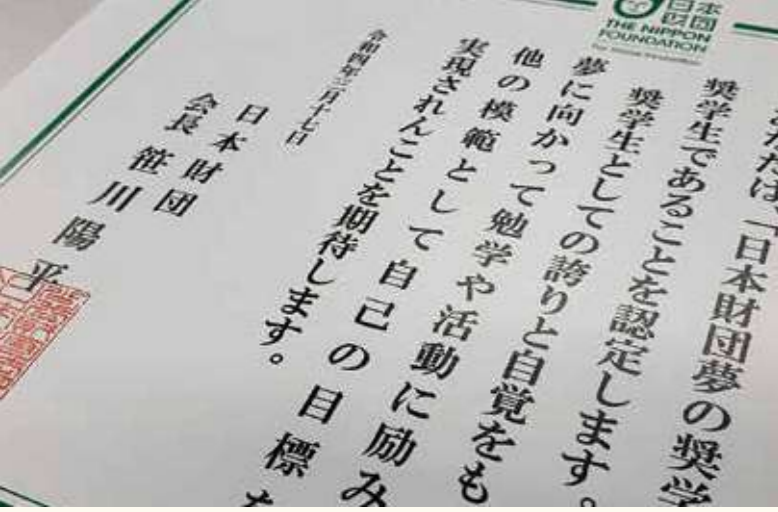 日本
財団
THE NIPPON
FOUNDATION
なたは、「日本財団夢の奨学
奨学生であることを認定します。
奨学生としての誇りと自覚をも
夢に向かって勉学や活動に励み
他の模範として自己の目標を
実現されんことを期待します。
令和四年三月十七日
日本財団
会長 笹川陽平